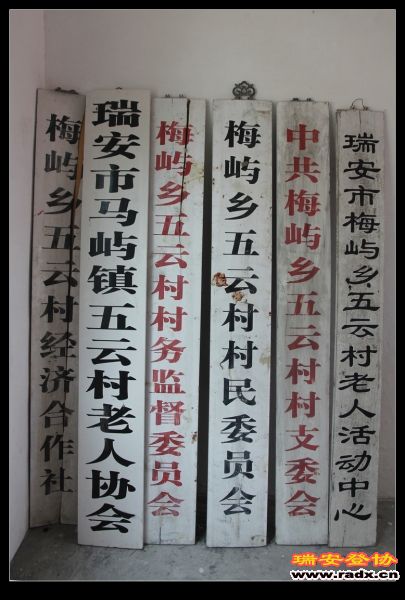 梅屿乡五云村经济合作社
瑞安市马屿镇五云村老人协会
梅屿乡五云村村务监督委员会
梅屿乡五云村村民委员会
中共梅屿乡五云村村支委会
瑞安市梅屿乡五云村老人活动中心
瑞安登协
www.radx.cn